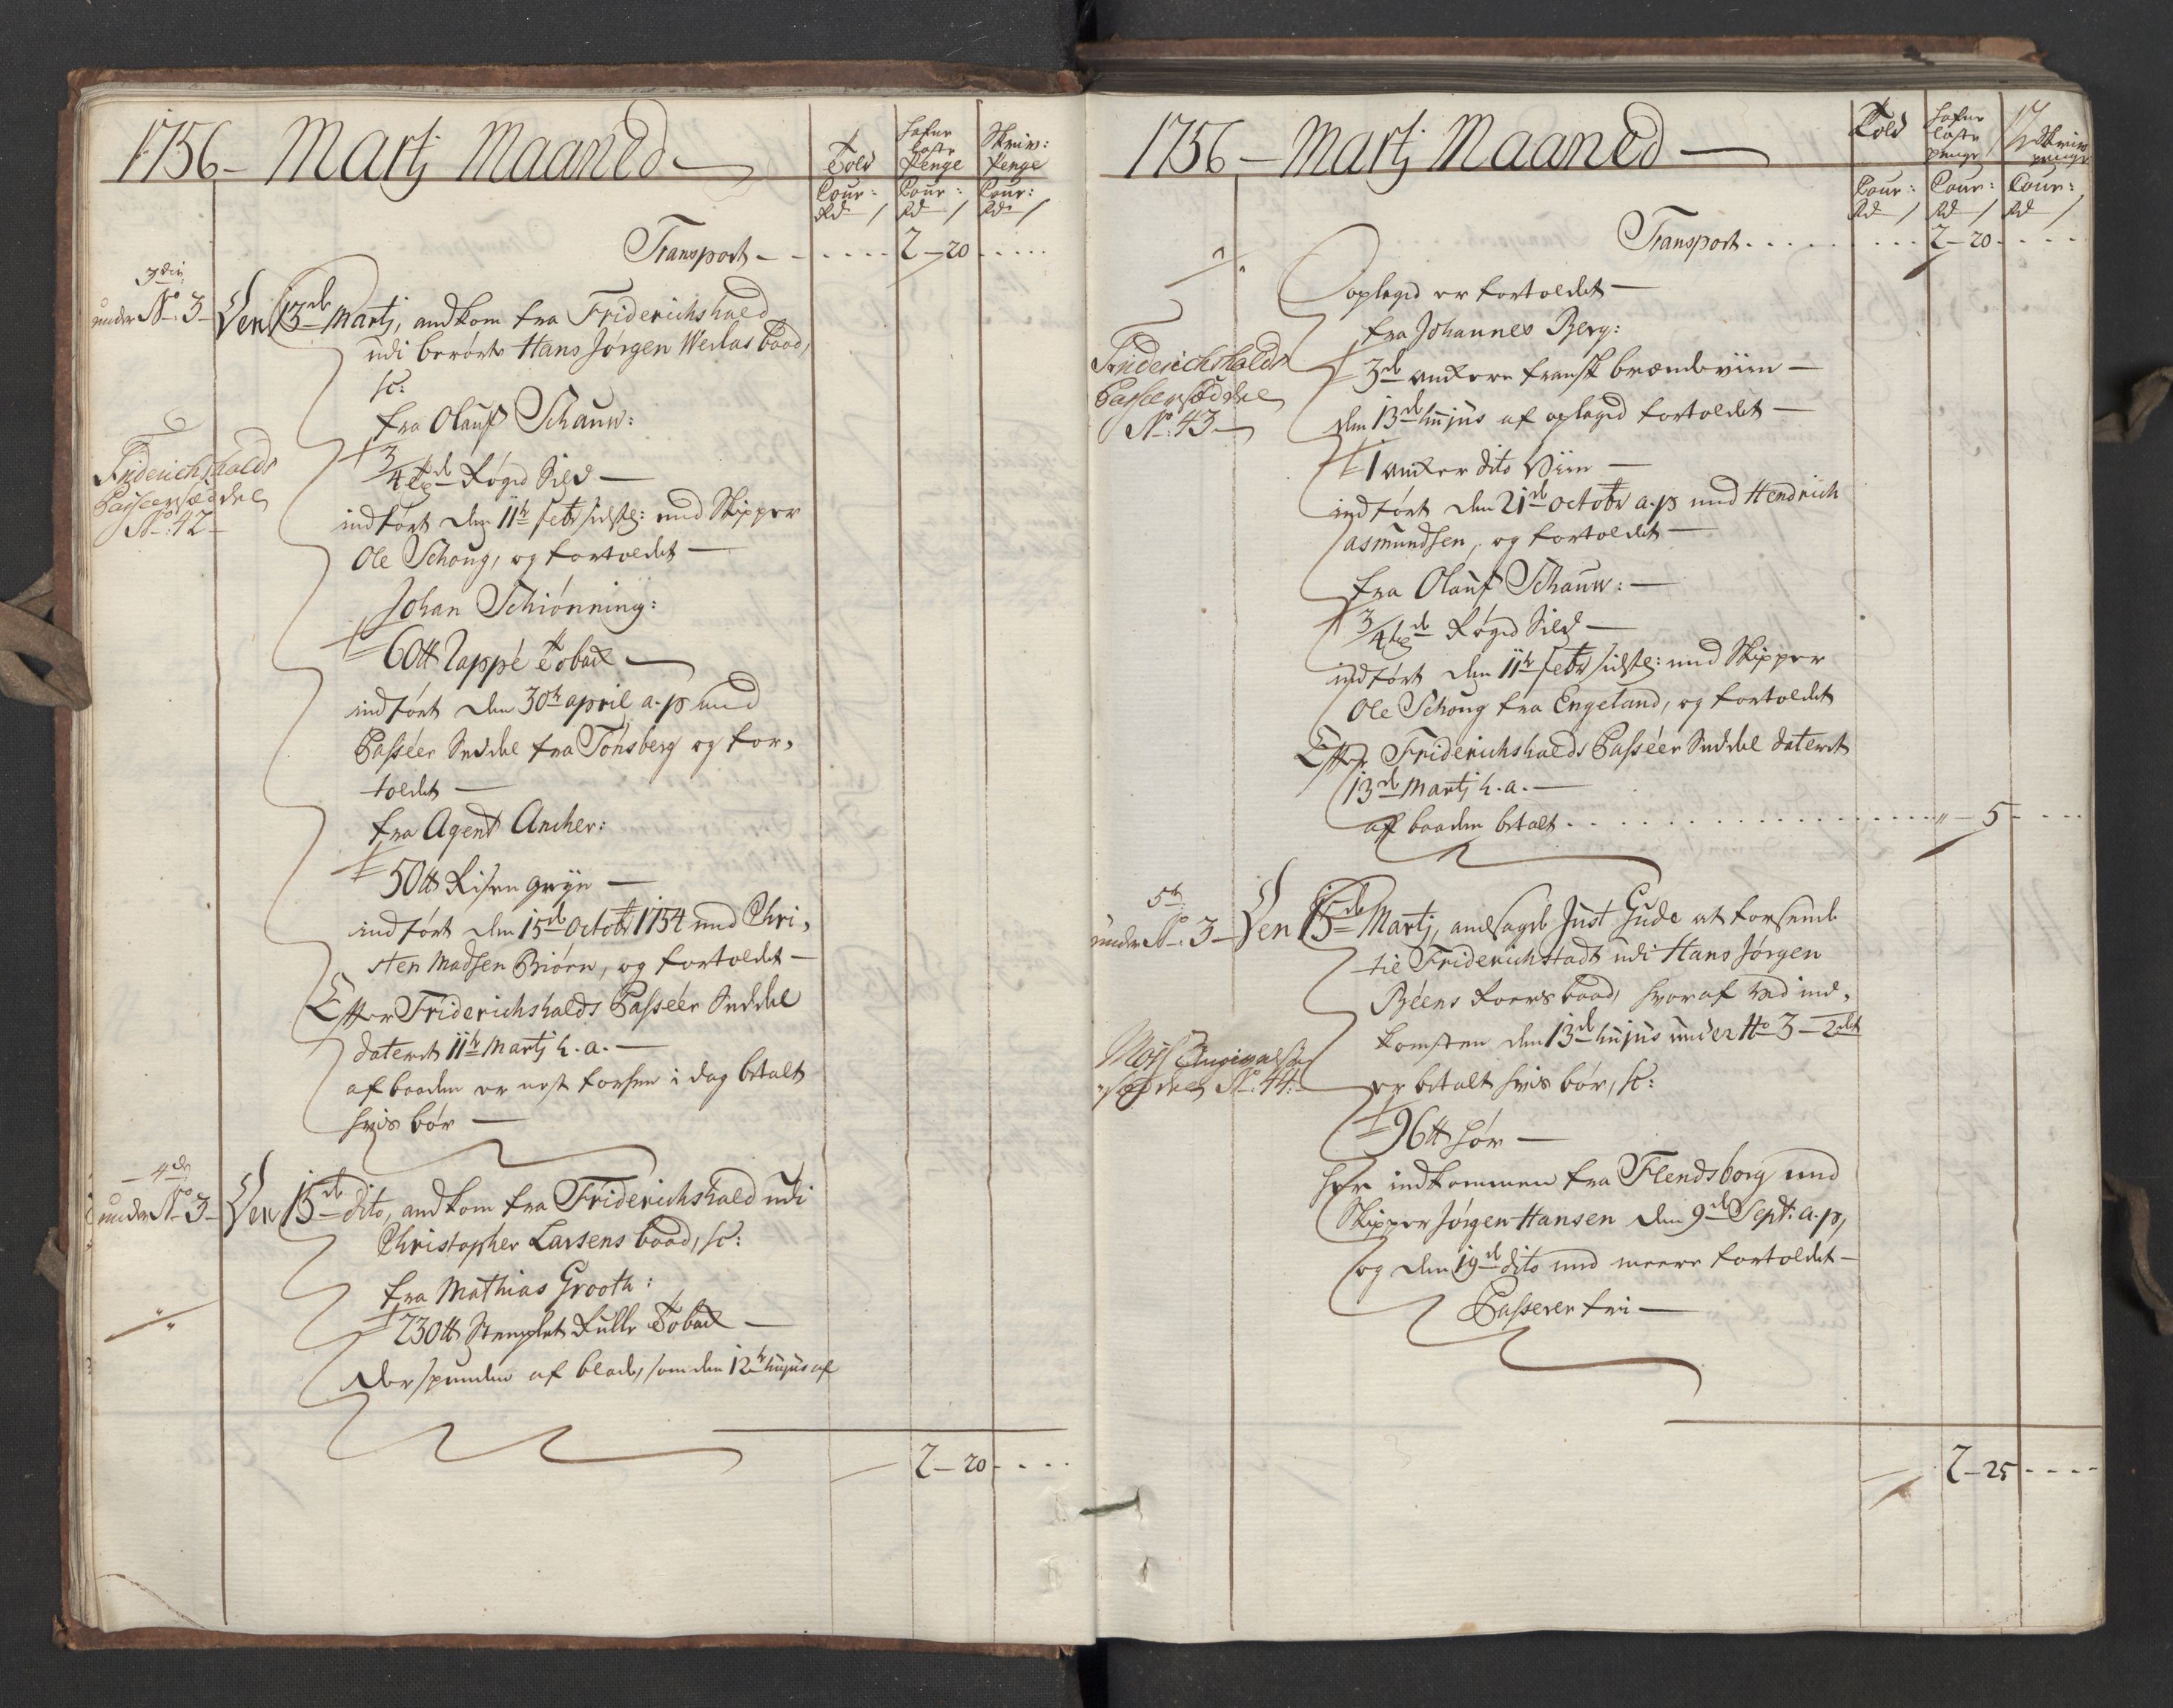 1756 – Martj Maaned –
Told
Hafne
Laste
Penge
Skriv:
Penge
Cour: Cour: Cour:
Rd / Rd / Rd /
Transport - - - - - 2 – 20 - - - -
3die
under No. 3 –
Den 13de Martj, andkom fra Friderichshald
udi berørte Hans Jørgen Werlas baad,
sc:
fra Oluf Schauw:
Friderichshalds
Passeersæddel
No. 42 –
3/4 td Røged Sild –
indført den 11te febr sidstl: med Skipper
Ole Schoug, og fortoldet –
Johan Schiønning:
60 tt Rappé Tobak –
indført den 30te april a. p med
Passéer Seddel fra Tønsberg og for-
toldet –
fra Agent Ancher:
50 tt Risengryn –
indført den 15de Octobr 1754 med Chri-
sten Madsen Biørn, og fortoldet –
Efter Friderichshalds Passéer Seddel
dateret 11te Martj h. a. –
af baaden er nest forhen i dag betalt
hvis bør –
4de
under No. 3 –
Den 15de dito, andkom fra Friderichshald udi
Christopher Larsens baad, sc:
fra Mathias Grooth:
230 tt Stemplet Rulle Tobak –
der spunden af blade, som den 12te hujus af
2 – 20 - - - -
1756 – Martj Maaned –
Told
Hafne
Laste
penge
Skriv
penge
Cour: Cour: Cour:
Rd / Rd / Rd /
Transport - - - - - 2 – 20 - - - -
oplaged er fortoldet –
fra Johannes Berg:
Friderichshalds
Passeersæddel
No. 43 –
3de ankere fransk brændeviin –
den 13de hujus af oplaged fortoldet –
1 anker dito Viin –
indført den 21de octobr a. p med Hendrich
Asmundsen, og fortoldet –
fra Oluf Schauw: –
3/4 td Røged Sild –
indført den 11te febr sidstl: med Skipper
Ole Schoug fra Engeland, og fortoldet
Efter Friderichshalds Passéer Seddel dateret
13de Martj h. a. –
af baaden betalt - - - - - „ – 5 - - - -
5te
under No. 3 –
Den 15de Martj, andsagde Just Gude at forsende
til Friderichstadt udi Hans Jørgen
Béens Roersbaad, hvoraf ved ind-
komsten den 13de hujus under No 3 – 2det
er betalt hvis bør, sc:
Moss
No. 44
96 tt hør –
her indkommen fra Flendsborg med
Skipper Jørgen Hansen den 9de Sept: a. p,
og den 19de dito med meere fortoldet –
Passerer fri –
2 – 25 - - - -